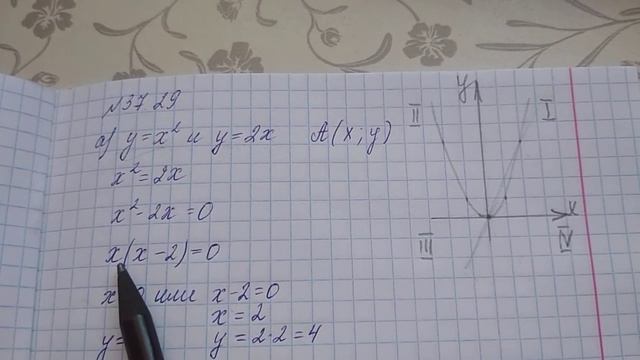 №37.29
а) y=x² и y=2x A(x;y)
x²=2x
x²-2x=0
x(x-2)=0
или x-2=0
x=2
y= y=2·2=4
y
II I
x
III IV